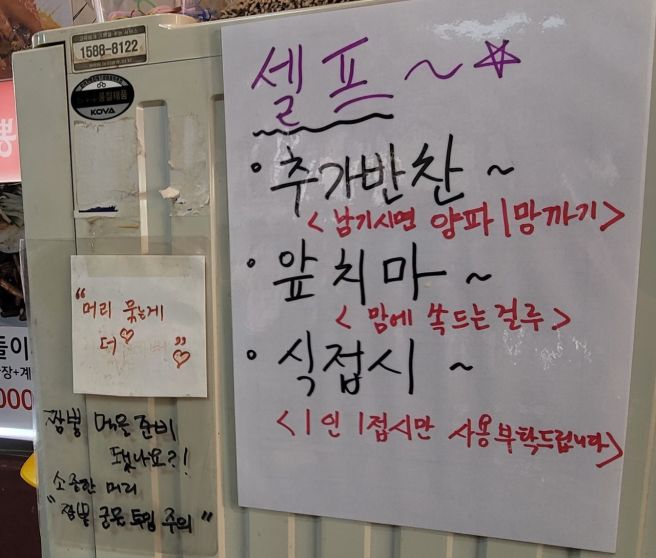 1588-8122
품질제품
KOVA
셀프~☆
• 추가반찬~
<남기시면 양파 1망까기>
• 앞치마~
<맘에 쏙드는걸루>
• 식접시~
<1인 1접시만 사용부탁드립니다>
"머리 묶는게
더♡ "♡
짬뽕 먹을 준비
됐나요?!
소중한 머리
"짬뽕 국물 투입 주의"
뽕
들이
장+계
000